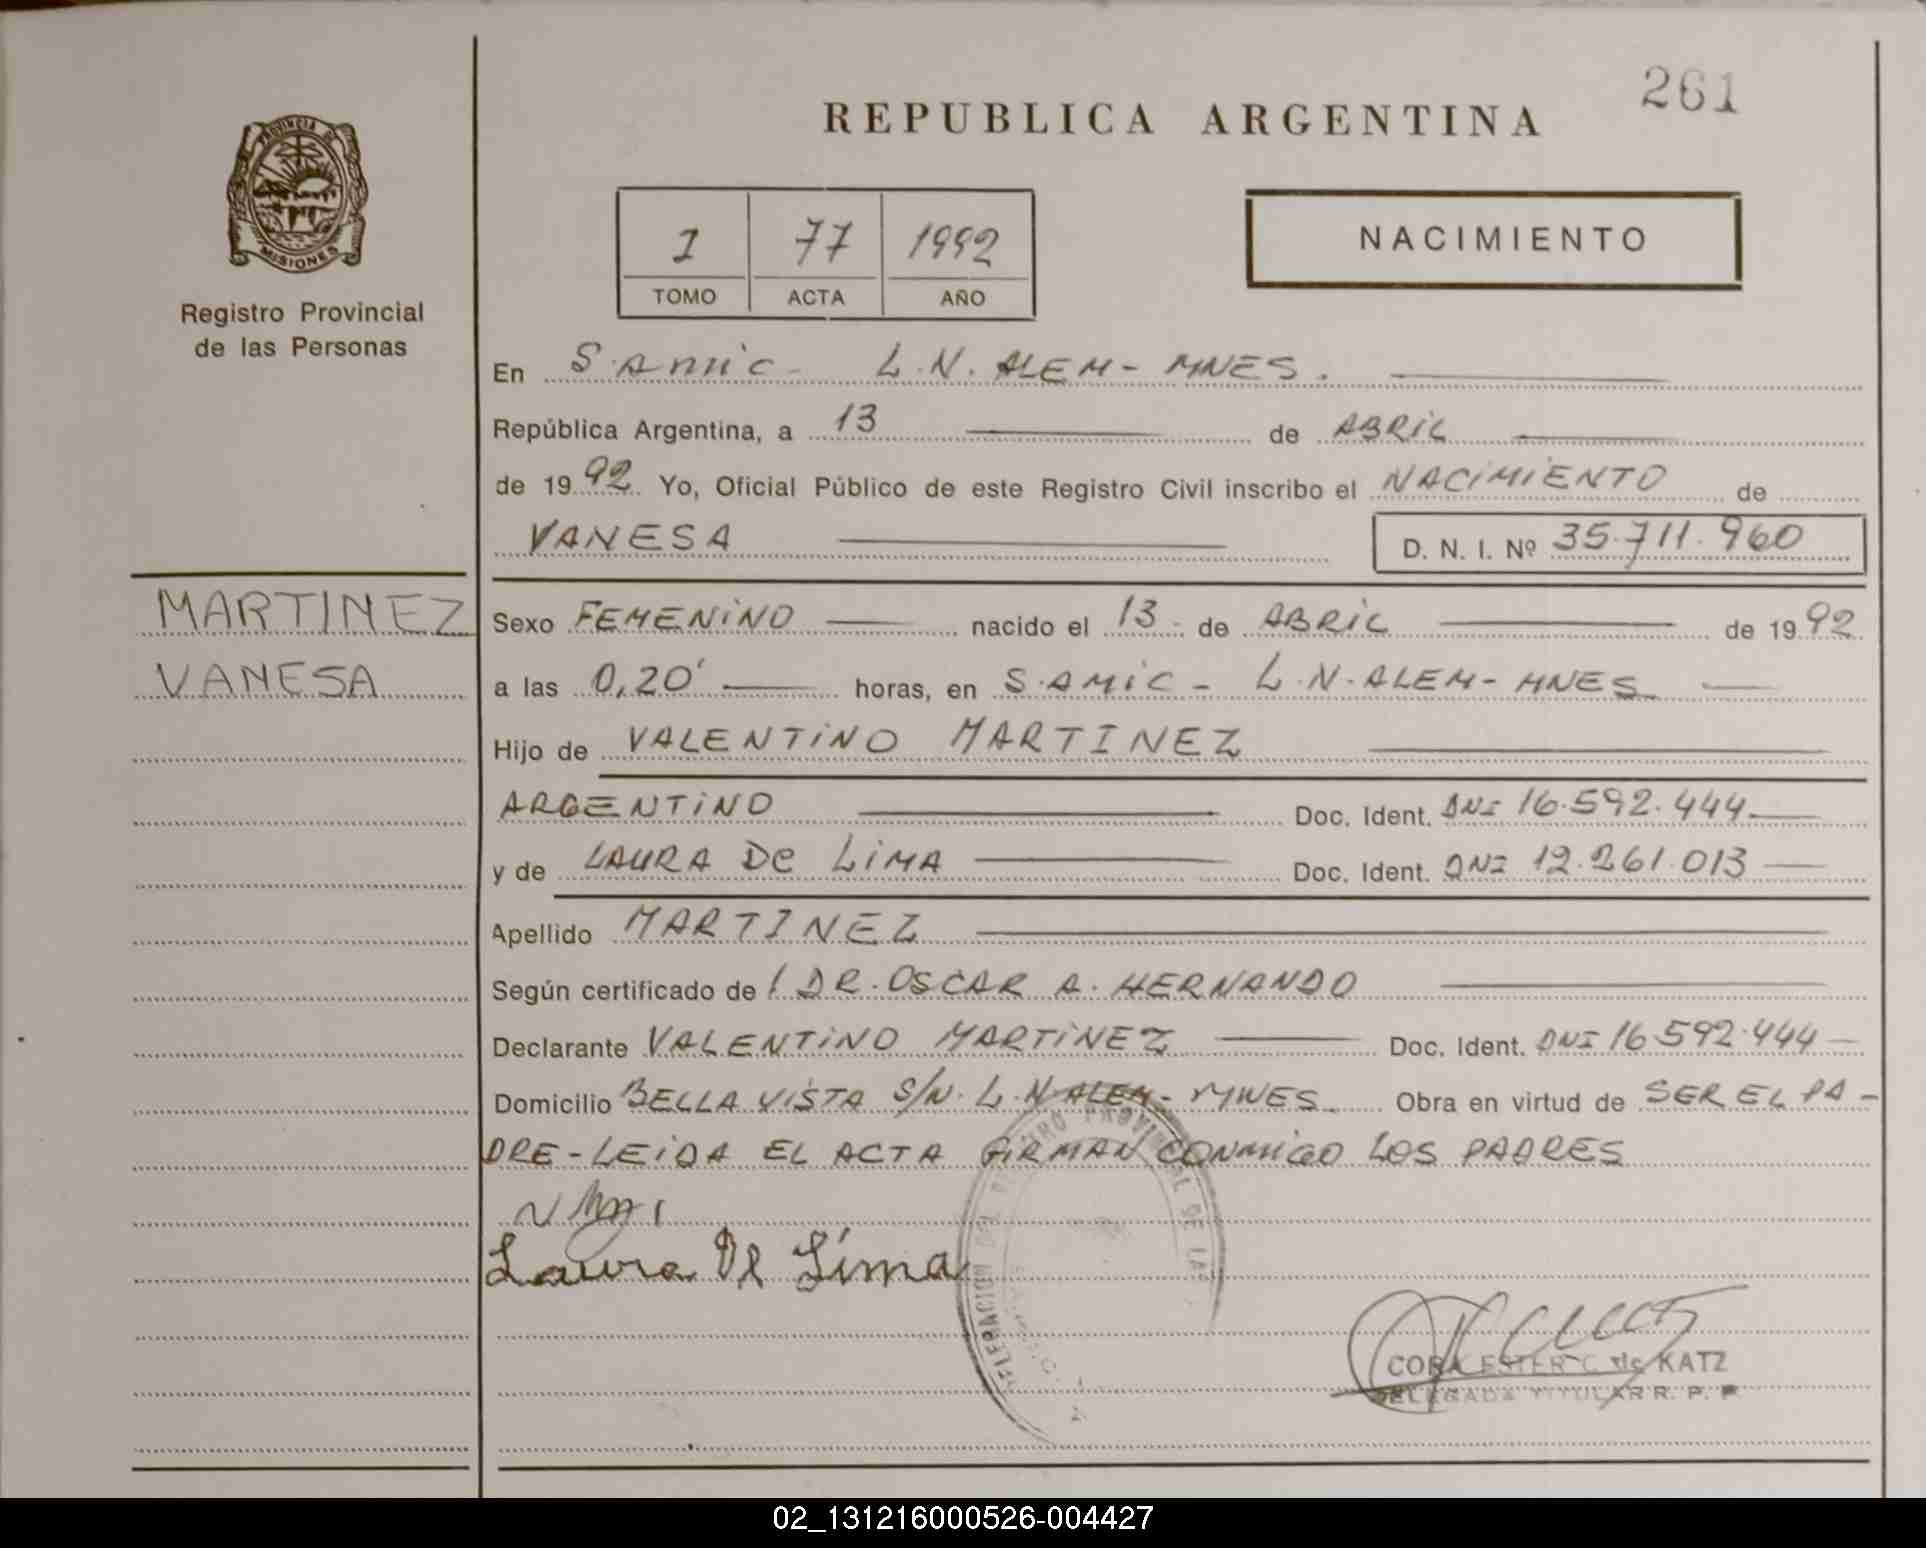 261
REPUBLICA ARGENTINA
PROVINCIA DE
MISIONES
Registro Provincial
de las Personas
1 77 1992
TOMO ACTA AÑO
NACIMIENTO
En S.AMIC - L.N. ALEM - MNES.
República Argentina, a 13 de ABRIL
de 1992 Yo, Oficial Público de este Registro Civil inscribo el NACIMIENTO de
VANESA D. N. I. Nº 35.711.960
MARTINEZ
VANESA
Sexo FEMENINO nacido el 13 de ABRIL de 1992
a las 0,20' horas, en S.AMIC - L.N.ALEM - MNES
Hijo de VALENTINO MARTINEZ
ARGENTINO Doc. Ident. DNI 16.592.444
y de LAURA De LiMA Doc. Ident. DNI 12.261.013
Apellido MARTINEZ
Según certificado de l DR. OSCAR A. HERNANDO
Declarante VALENTINO MARTINEZ Doc. Ident. DNI 16.592.444
Domicilio BELLA VISTA S/N. L.N.ALEM - MNES. Obra en virtud de SER EL PA-
DRE - LEIDA EL ACTA FIRMAN CONMIGO LOS PADRES
Laura De Lima
PROVINCIAL DE LAS
CORA ESTER C. de KATZ
DELEGADA TITULAR R. P. P.
02_131216000526-004427